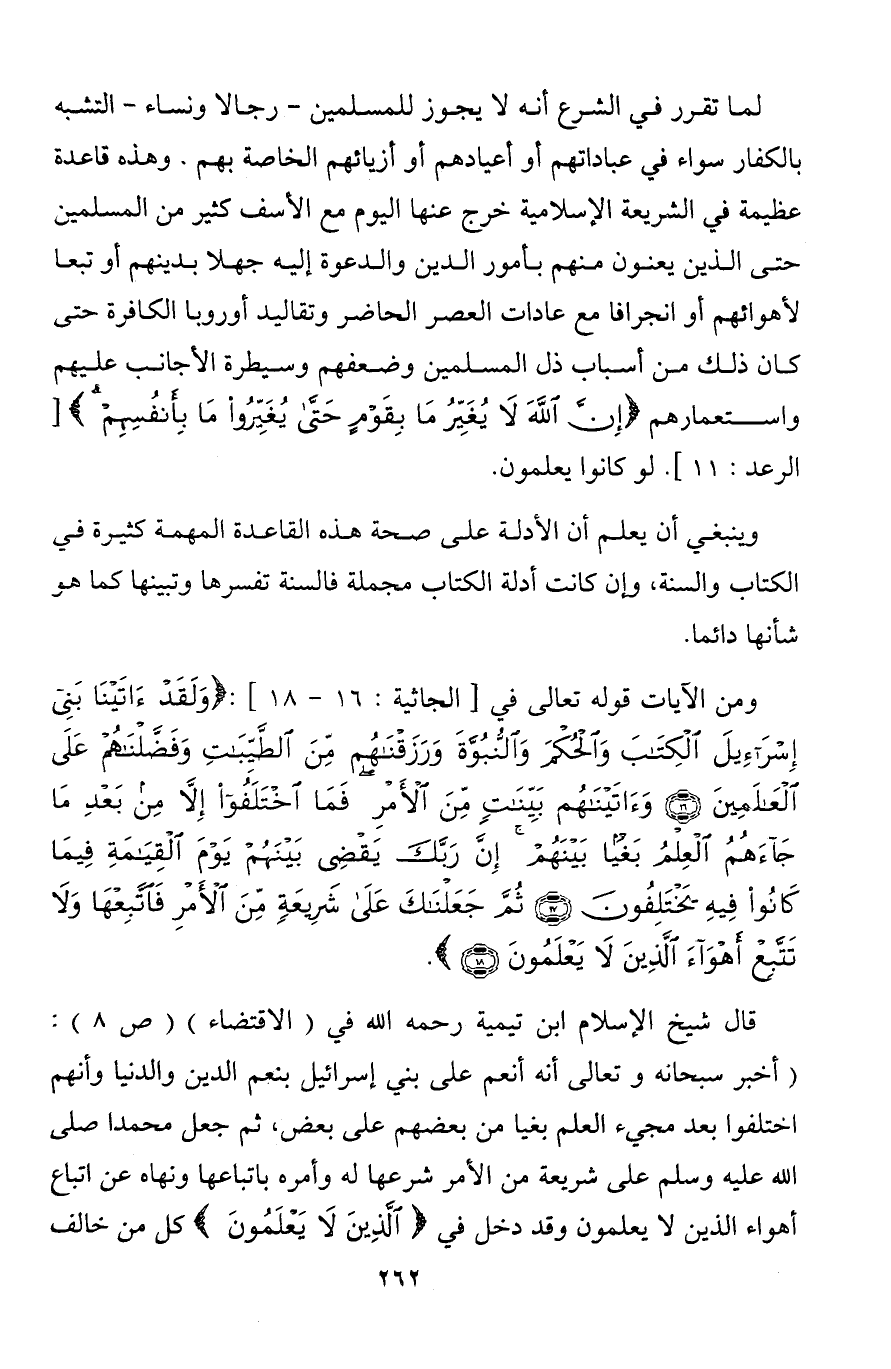 لما تقرر في الشرع أنه لا يجوز للمسلمين - رجالا ونساء - التشبه
بالكفار سواء في عباداتهم أو أعيادهم أو أزيائهم الخاصة بهم . وهذه قاعدة
عظيمة في الشريعة الإسلامية خرج عنها اليوم مع الأسف كثير من المسلمين
حتى الذين يعنون منهم بأمور الدين والدعوة إليه جهلا بدينهم أو تبعا
لأهوائهم أو انجرافا مع عادات العصر الحاضر وتقاليد أوروبا الكافرة حتى
كان ذلك من أسباب ذل المسلمين وضعفهم وسيطرة الأجانب عليهم
واستعمارهم ﴿إِنَّ ٱللَّهَ لَا يُغَيِّرُ مَا بِقَوْمٍ حَتَّىٰ يُغَيِّرُوا۟ مَا بِأَنفُسِهِمْ ۗ﴾ [
الرعد : ١١ ]. لو كانوا يعلمون.
وينبغي أن يعلم أن الأدلة على صحة هذه القاعدة المهمة كثيرة في
الكتاب والسنة، وإن كانت أدلة الكتاب مجملة فالسنة تفسرها وتبينها كما هو
شأنها دائما.
ومن الآيات قوله تعالى في [ الجاثية : ١٦ - ١٨ ] :﴿وَلَقَدْ ءَاتَيْنَا بَنِىٓ
إِسْرَٰٓءِيلَ ٱلْكِتَٰبَ وَٱلْحُكْمَ وَٱلنُّبُوَّةَ وَرَزَقْنَٰهُم مِّنَ ٱلطَّيِّبَٰتِ وَفَضَّلْنَٰهُمْ عَلَى
ٱلْعَٰلَمِينَ ١٦ وَءَاتَيْنَٰهُم بَيِّنَٰتٍ مِّنَ ٱلْأَمْرِ ۖ فَمَا ٱخْتَلَفُوٓا۟ إِلَّا مِنۢ بَعْدِ مَا
جَآءَهُمُ ٱلْعِلْمُ بَغْيًۢا بَيْنَهُمْ ۚ إِنَّ رَبَّكَ يَقْضِى بَيْنَهُمْ يَوْمَ ٱلْقِيَٰمَةِ فِيمَا
كَانُوا۟ فِيهِ يَخْتَلِفُونَ ١٧ ثُمَّ جَعَلْنَٰكَ عَلَىٰ شَرِيعَةٍ مِّنَ ٱلْأَمْرِ فَٱتَّبِعْهَا وَلَا
تَتَّبِعْ أَهْوَآءَ ٱلَّذِينَ لَا يَعْلَمُونَ ١٨ ﴾.
قال شيخ الإسلام ابن تيمية رحمه الله في ( الاقتضاء ) ( ص ٨ ) :
( أخبر سبحانه و تعالى أنه أنعم على بني إسرائيل بنعم الدين والدنيا وأنهم
اختلفوا بعد مجيء العلم بغيا من بعضهم على بعض، ثم جعل محمدا صلى
الله عليه وسلم على شريعة من الأمر شرعها له وأمره باتباعها ونهاه عن اتباع
أهواء الذين لا يعلمون وقد دخل في ﴿ ٱلَّذِينَ لَا يَعْلَمُونَ ﴾ كل من خالف
٢٦٢